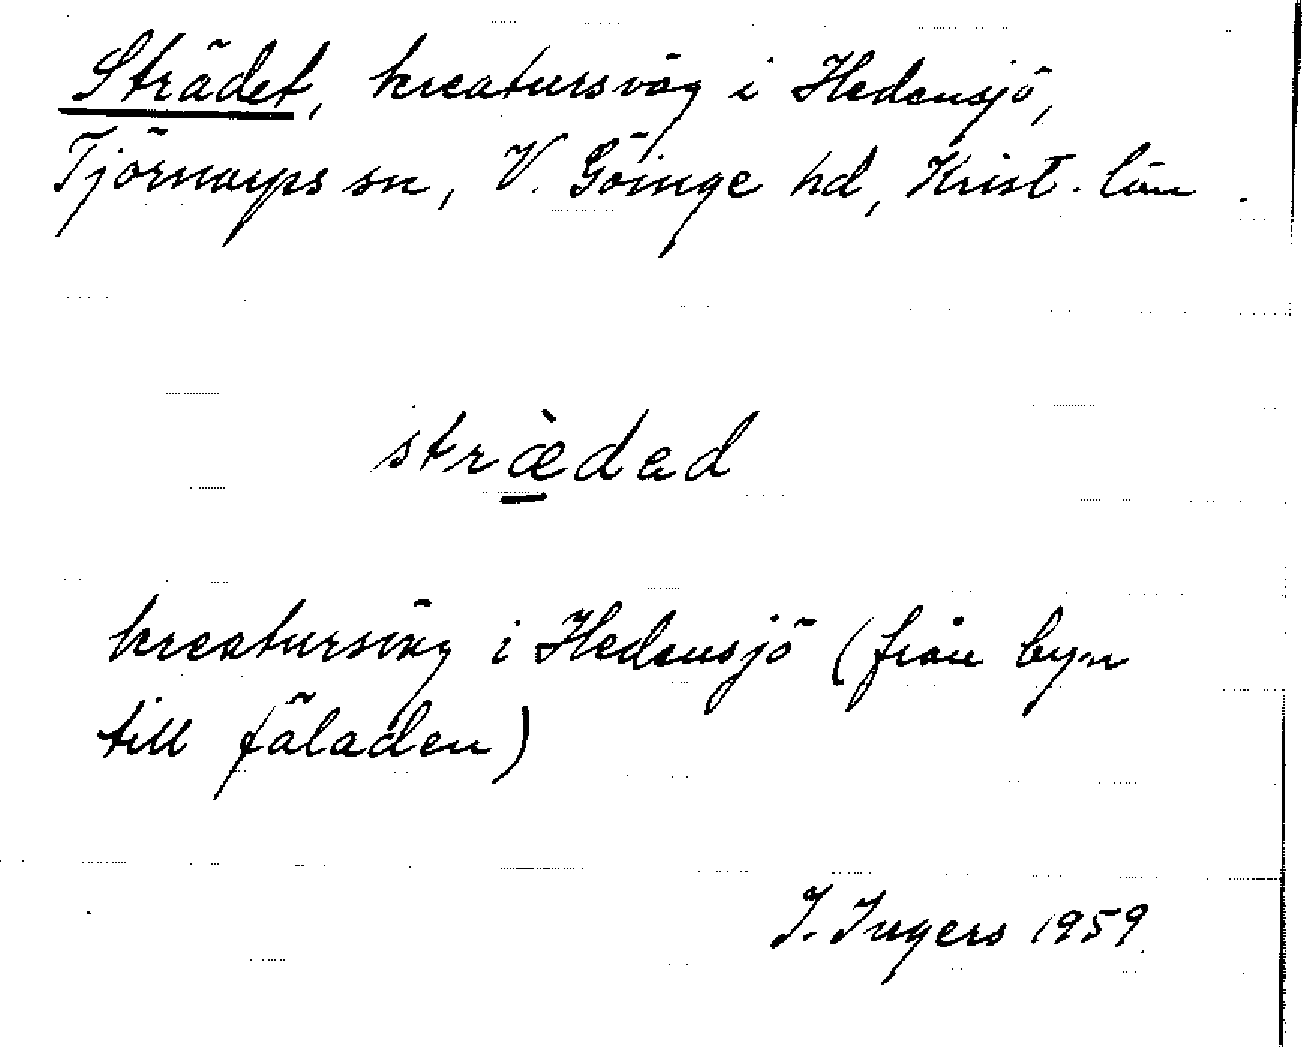 Strädet, kreatursväg i Hedensjö,
Tjörnarps sn, V. Göinge hd, Krist. län.
stræ̀dad
kreatursväg i Hedensjö (från byn
till fäladen)
I. Ingers 1959.